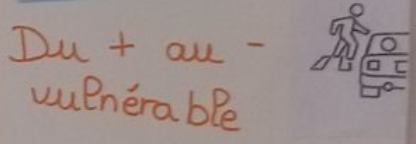 Du + au -
vulnérable